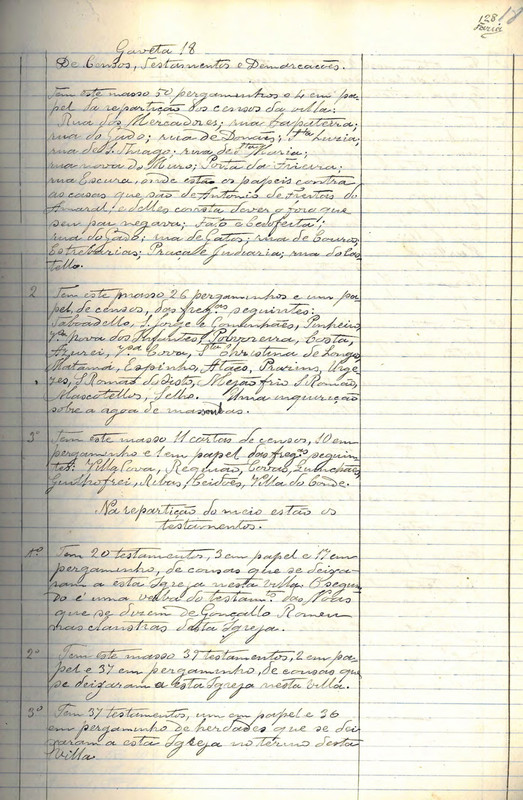 128
18
Faria
Gaveta 18
De Censos, Testamentos e Demarcações.
Tem este masso 50 pergaminhos e 4 em pa-
pel da repartição dos censos da villa:
Rua dos Mercadores; rua Çapateira;
rua do Gado; rua de Donães; Sta Luzia;
rua de S. Thiago; rua de Sta Maria;
rua nova do Muro; Porta da Freiria;
rua Escura, onde estão os papeis contra
as casas que são de Antonio de Freitas do
Amaral, e delles consta dever o foro que
sem paga negava; Fato e Cedofeita;
rua do Gado; rua de Gatos; rua de Couros,
Estrebarias; Praça e Judiaria; rua do Cas-
tello.
2 Tem este masso 26 pergaminhos e um pa-
pel, de censos, das fregas seguintes:
Taboadello, S. Jorge e Gominhães, Pinheiro,
Va Nova dos Infantes, Polvoreira, Costa,
Azurei, Cova, Sta Christina de Longos,
Matamá, Espinho, Ataes, Prazins, Urge-
zes, S. Romão do Disto, Mejão frio S. Romão,
Mascotellos, Selho. Uma inquirição
sobre a agoa de massoulas.
3º Tem este masso 11 cartas de censos, 10 em
pergaminho e 1 em papel das fregas seguin-
tes: Villa Cova, Requião, Covas, Guinchães,
Guilhofrei, Ribas, Ceidões, Villa do Conde.
Na repartição do meio estão os
testamentos.
1º Tem 20 testamentos, 3 em papel e 17 em
pergaminho, de cousas que se deixa-
ram a esta Igreja nesta villa. O segun-
do é uma verba do testamo das Noias
que se dizem de Gonçallo Romeu
nas claustras desta Igreja.
2º Tem este masso 39 testamentos, 2 em pa-
pel e 37 em pergaminho, de cousas que
se deixaram a esta Igreja nesta villa.
3º Tem 37 testamentos, um em papel e 36
em pergaminho de herdades que se dei-
xaram a esta Igreja no termo desta
Villa.